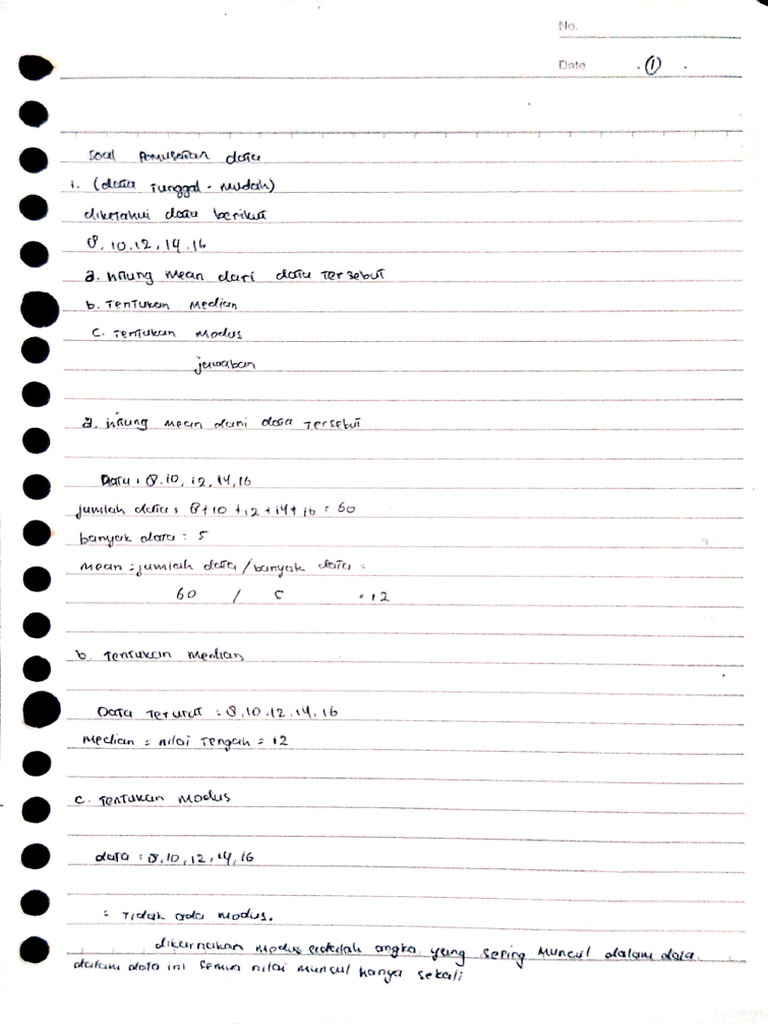 No.
Date . ① .
Soal Pemusatan data
1. (data Tunggal - Mudah)
diketahui data berikut
8, 10, 12, 14, 16
a. hitung mean dari data Tersebut
b. Tentukan Median
c. Tentukan Modus
jawaban
a. hitung mean dari data Tersebut
Data : 8, 10, 12, 14, 16
jumlah data : 8 + 10 + 12 + 14 + 16 = 60
banyak data : 5
mean = jumlah data / banyak data =
60 / 5 = 12
b. Tentukan median
Data Terurut : 8, 10, 12, 14, 16
Median = nilai Tengah = 12
c. Tentukan Modus
data : 8, 10, 12, 14, 16
= Tidak ada modus.
dikarnakan modus adalah angka yang sering Muncul dalam data.
dalam data ini semua nilai muncul hanya sekali